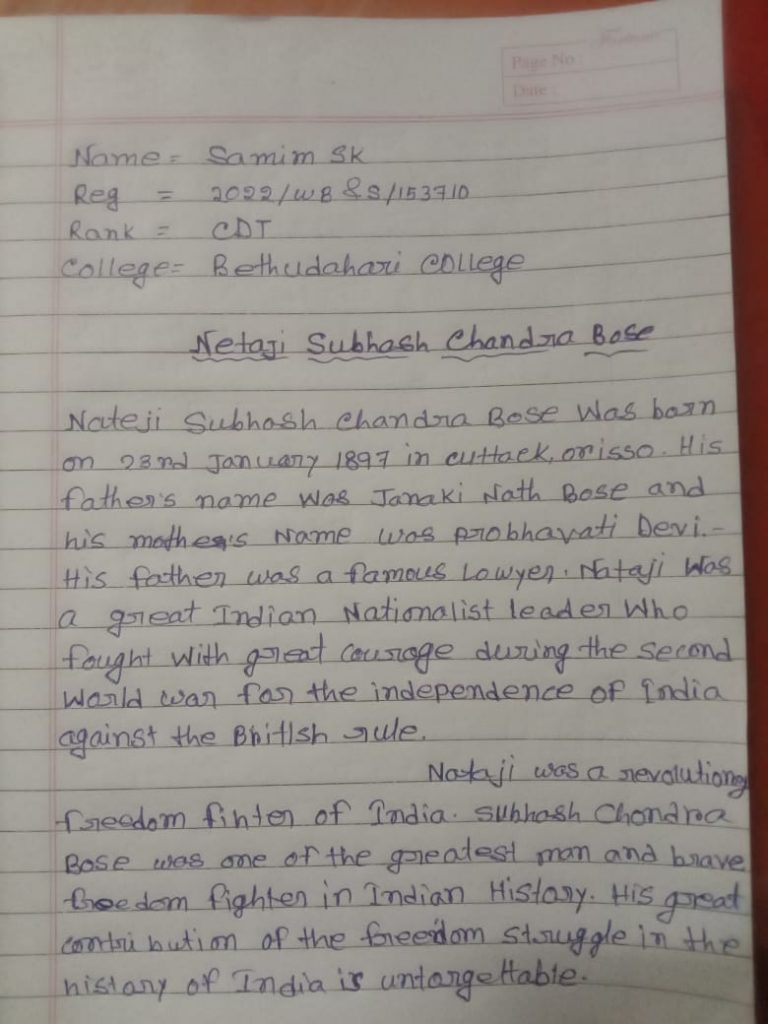 Page No :
Date :
Name = Samim SK
Reg = 2022/WB & S/153710
Rank = CDT
College = Bethudahari College
Netaji Subhash Chandra Bose
Nateji Subhash Chandra Bose Was born
on 23rd January 1897 in cuttack, orisso. His
father's name was Janaki Nath Bose and
his mother's Name was probhavati Devi.-
His father was a famous Lowyer. Nataji Was
a great Indian Nationalist leader Who
fought With great courage during the second
World war for the independence of India
against the Bhitlsh rule.
Nataji was a revolutiong
freedom finter of India. Subhash Chondra
Bose was one of the greatest man and brave
freedom fighter in Indian History. His great
contri bution of the freedom struggle in the
history of India is untorgettable.